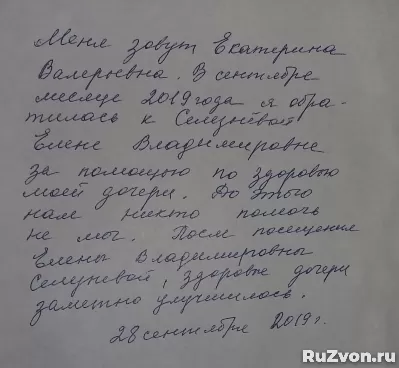 Меня зовут Екатерина
Валерьевна. В сентябре
месяце 2019 года я обра-
тилась к Селезнёвой
Елене Владимировне
за помощью по здоровью
моей дочери. До этого
нам никто помочь
не мог. После посещения
Елены Владимировны
Селезневой, здоровье дочери
заметно улучшилось.
28 сентября 2019 г.
RuZvon.ru